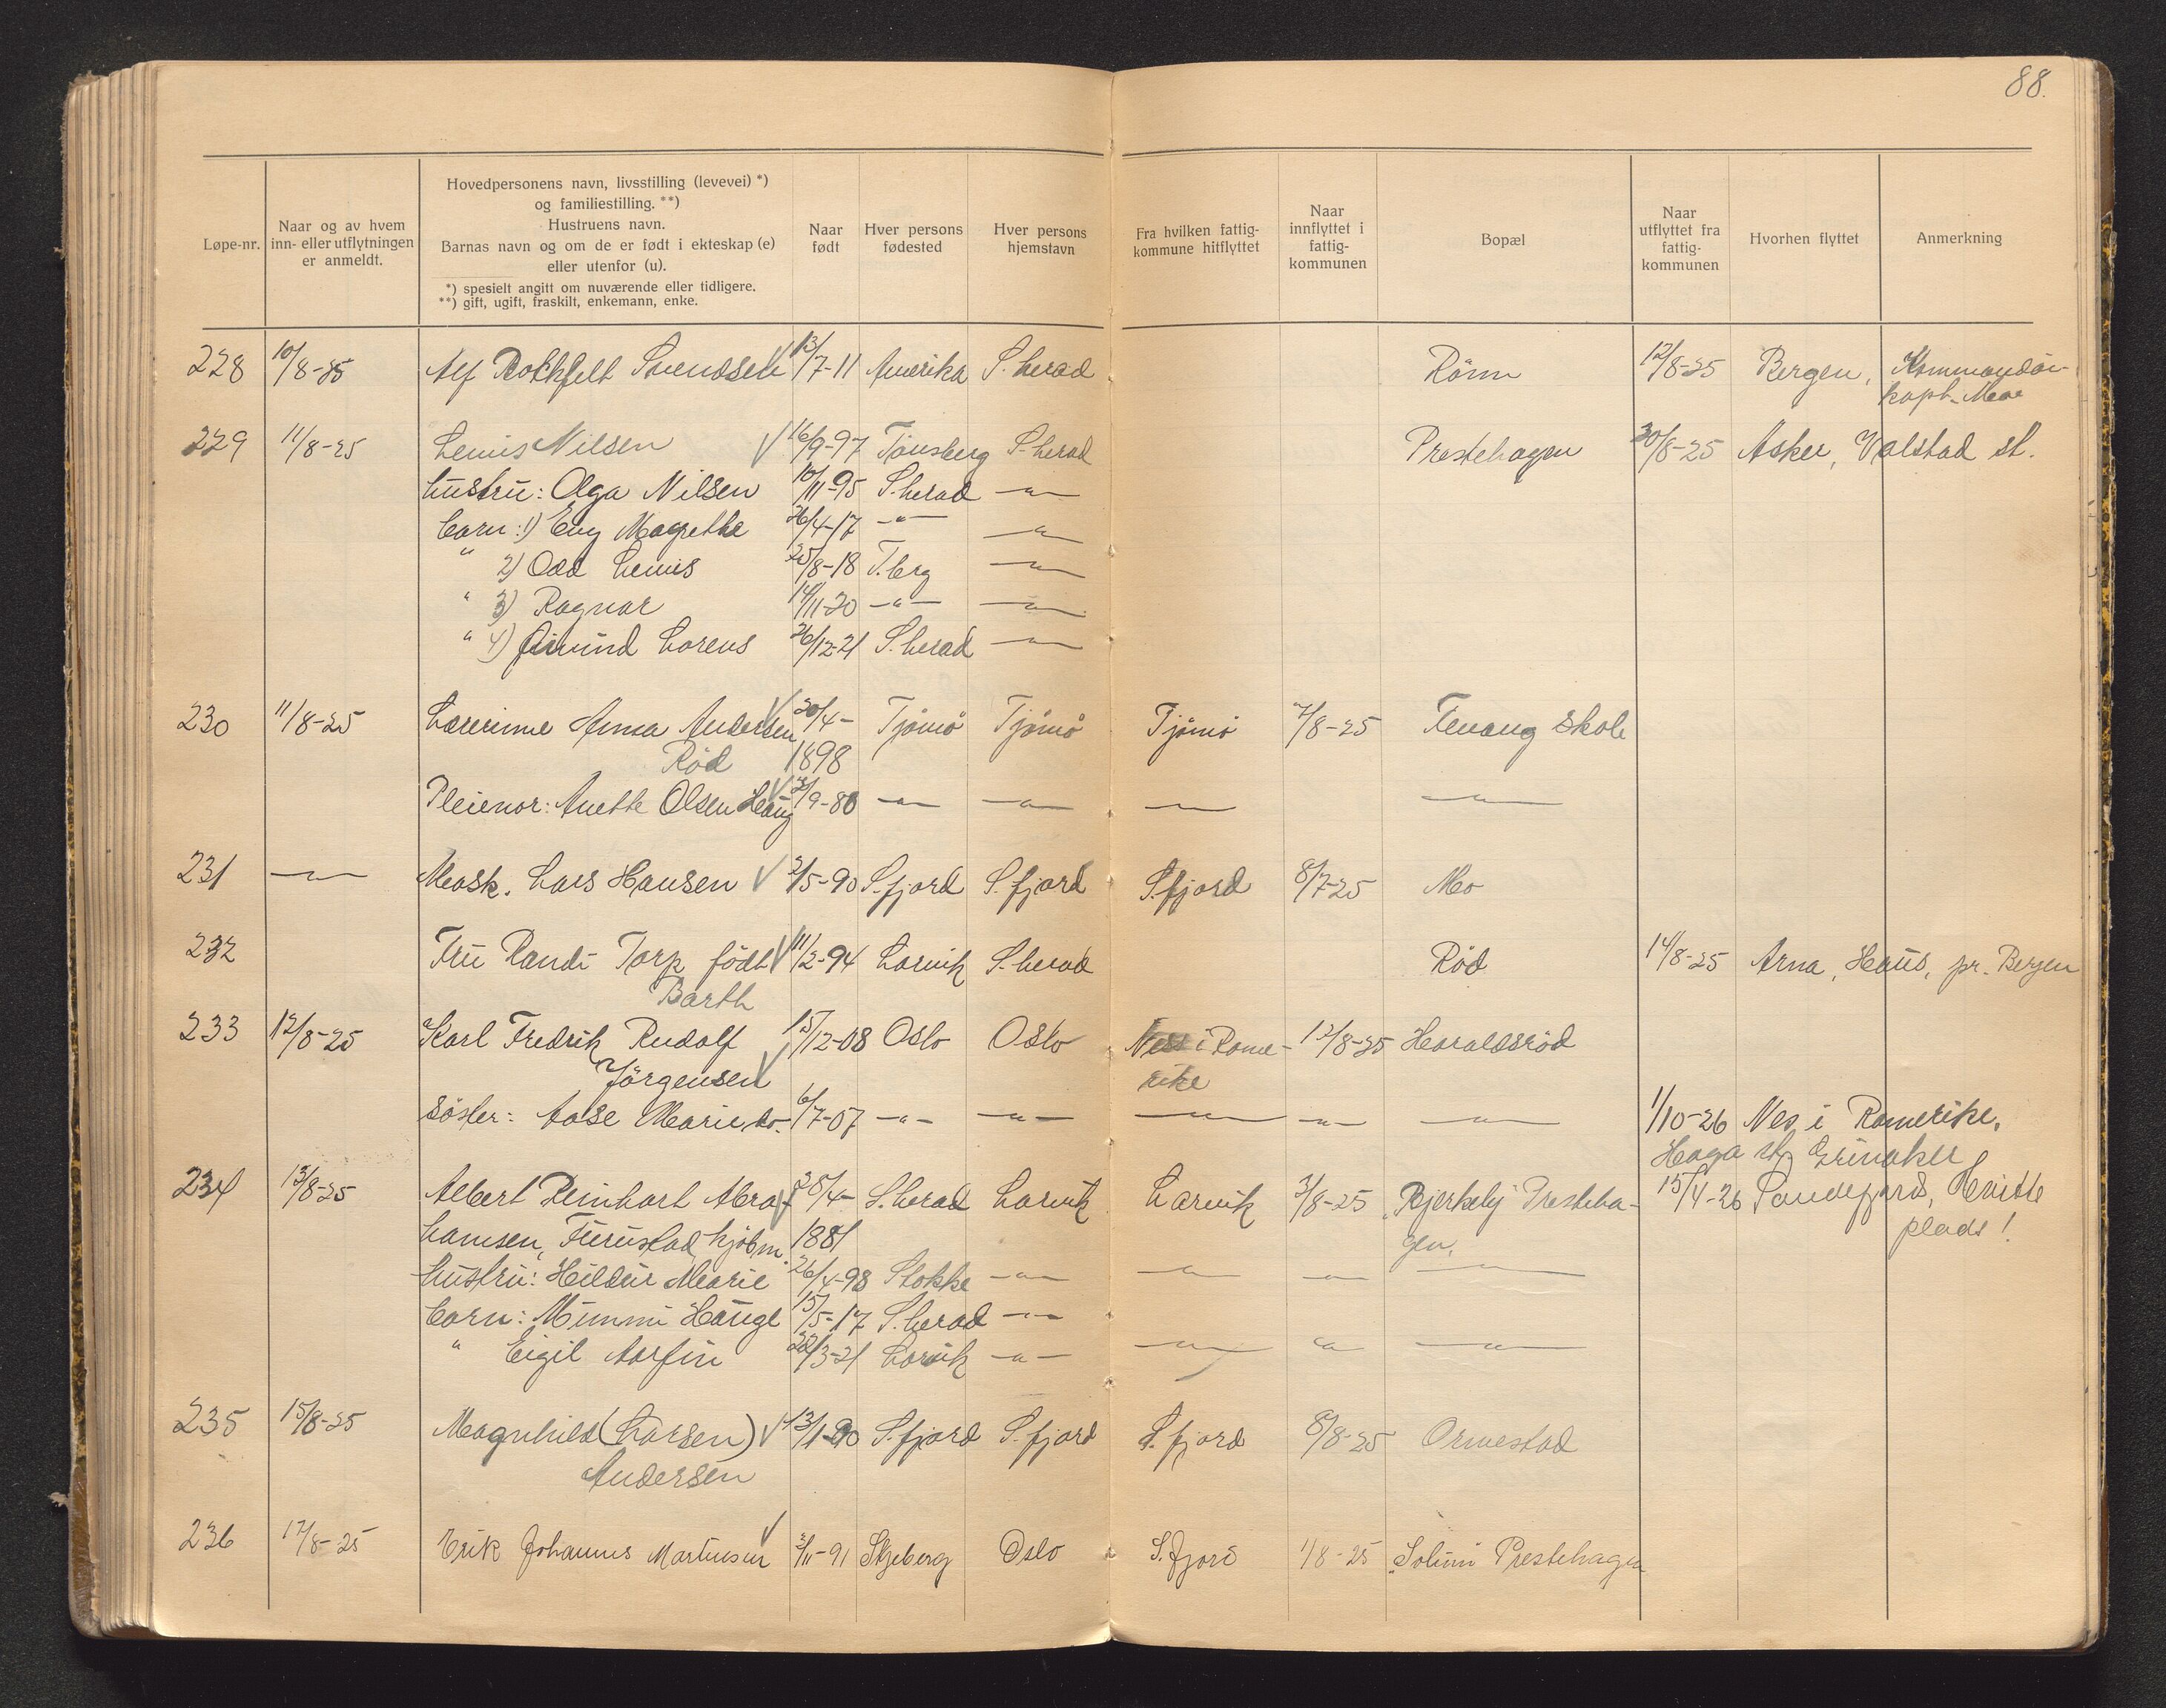 88.
Løpe-nr.
Naar og av hvem
inn- eller utflytningen
er anmeldt.
Hovedpersonens navn, livsstilling (levevei) *)
og familiestilling. **)
Hustruens navn.
Barnas navn og om de er født i ekteskap (e)
eller utenfor (u).
*) spesielt angitt om nuværende eller tidligere.
**) gift, ugift, fraskilt, enkemann, enke.
Naar
født
Hver persons
fødested
Hver persons
hjemstavn
Fra hvilken fattig-
kommune hitflyttet
Naar
innflyttet i
fattig-
kommunen
Bopæl
Naar
utflyttet fra
fattig-
kommunen
Hvorhen flyttet
Anmerkning
228 10/8-25 Alf Svendsen 13/7-11 Amerika S. herad Rönn 12/8-25 Bergen, Kommandör-
kapt.
229 11/8-25 Lewis Nilsen 16/9-97 Tönsberg S. herad Prestehagen 30/8-25 Asker, Valstad st.
hustru: Olga Nilsen 10/11-95 S. herad —"—
barn: 1) Eny Magrethe 26/4-17 —"— —"—
" 2) Odd Lewis 25/8-18 T.berg —"—
" 3) Ragnar 14/11-20 —"— —"—
" 4) Öivind Lorens 26/12-21 S. herad —"—
230 11/8-25 Lærerinne Anna Andersen 30/4- Tjömö Tjömö Tjömö 7/8-25 Fevang Skole
Röd 1898
Pleiemor: Anette Olsen Haug /9-80 —"— —"— —"— —"—
231 —"— Mask. Lars Hansen 2/5-90 S. fjord S. fjord S. fjord 8/7-25 Mo
232 Fru Randi Torp födt 11/2-94 Larvik S. herad Röd 14/8-25 Arna, Haus, pr. Bergen
Barth
233 12/8-25 Karl Fredrik Rudolf 15/12-08 Oslo Oslo Nes i Rome- 12/8-25 Haraldsröd
Jörgensen rike
Söster: Aase Marie do. 6/7-07 —"— —"— —"— —"— —"— 1/10-26 Nes i Romerike,
Haga st. Grinaker
234 13/8-25 Albert Reinhart Abra- 25/4- S. herad Larvik Larvik 3/8-25 "Bjerkely" Presteha- 15/4-26 Sandefjord, Hvitte
hamsen, Furustad, kjöbm. 1881 gen. plads!
hustru: Hildur Marie 26/4-98 Stokke —"— —"— —"— —"—
barn: Mimmi Hauge 15/5-17 S. herad —"—
" Eigil Arfin 22/3-21 Larvik —"— —"— " —"—
235 15/8-25 Magnhild (Larsen) 13/1-90 S. fjord S. fjord S. fjord 8/8-25 Ormestad
Andersen
236 17/8-25 Erik Johannes Martinsen /11-91 Skjeberg Oslo S. fjord 1/8-25 Prestehagen